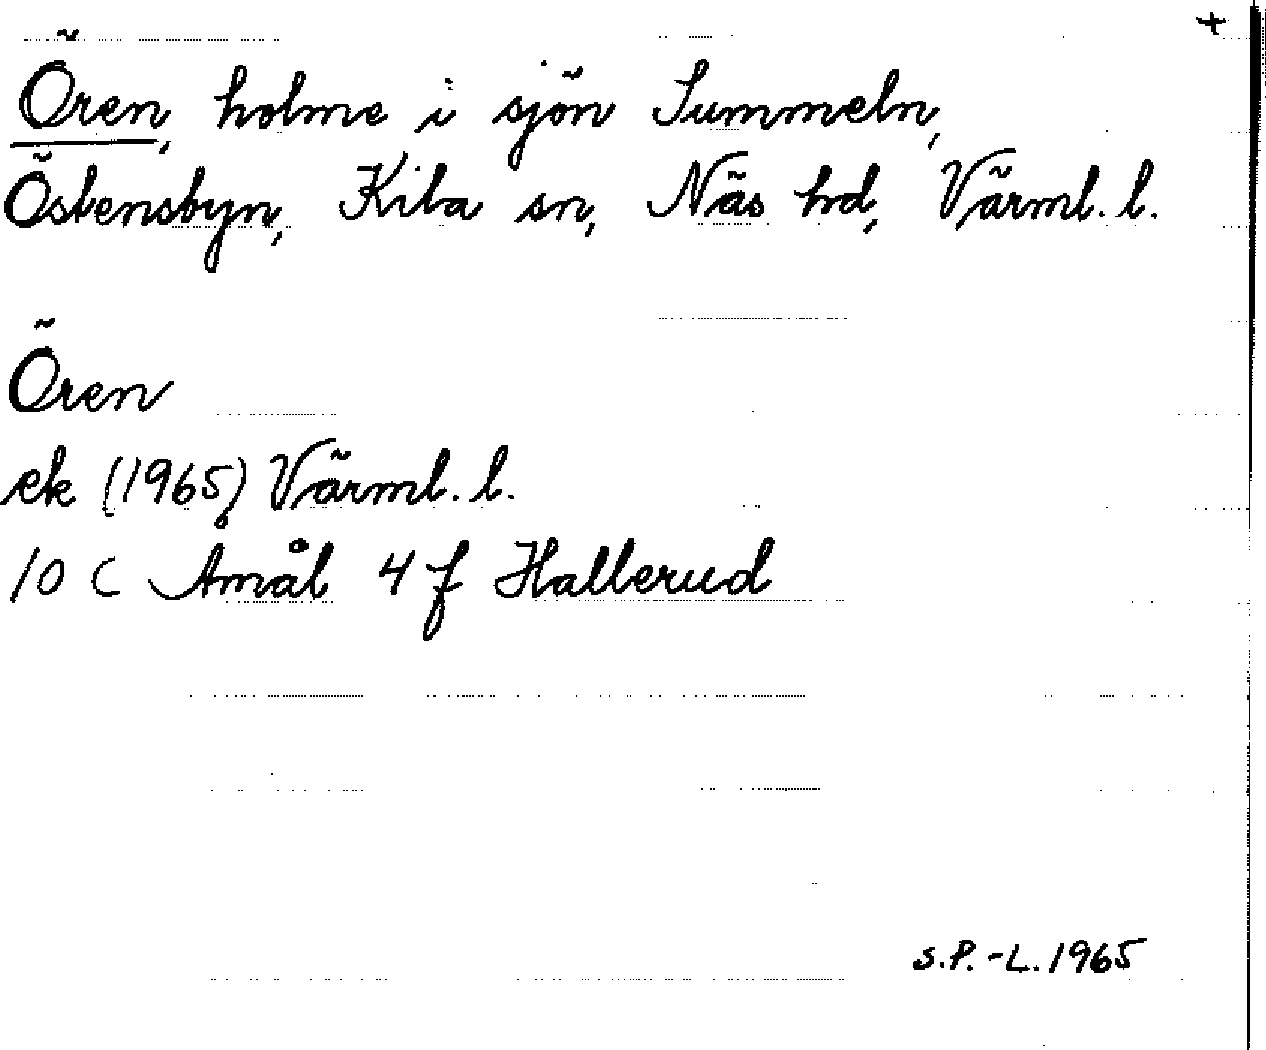 +
Ören, holme i sjön Summeln,
Östensbyn, Kila sn, Näs hd, Värml. l.
Ören
ek (1965) Värml. l.
10 C Åmål 4 f Hallerud
S.P.-L. 1965